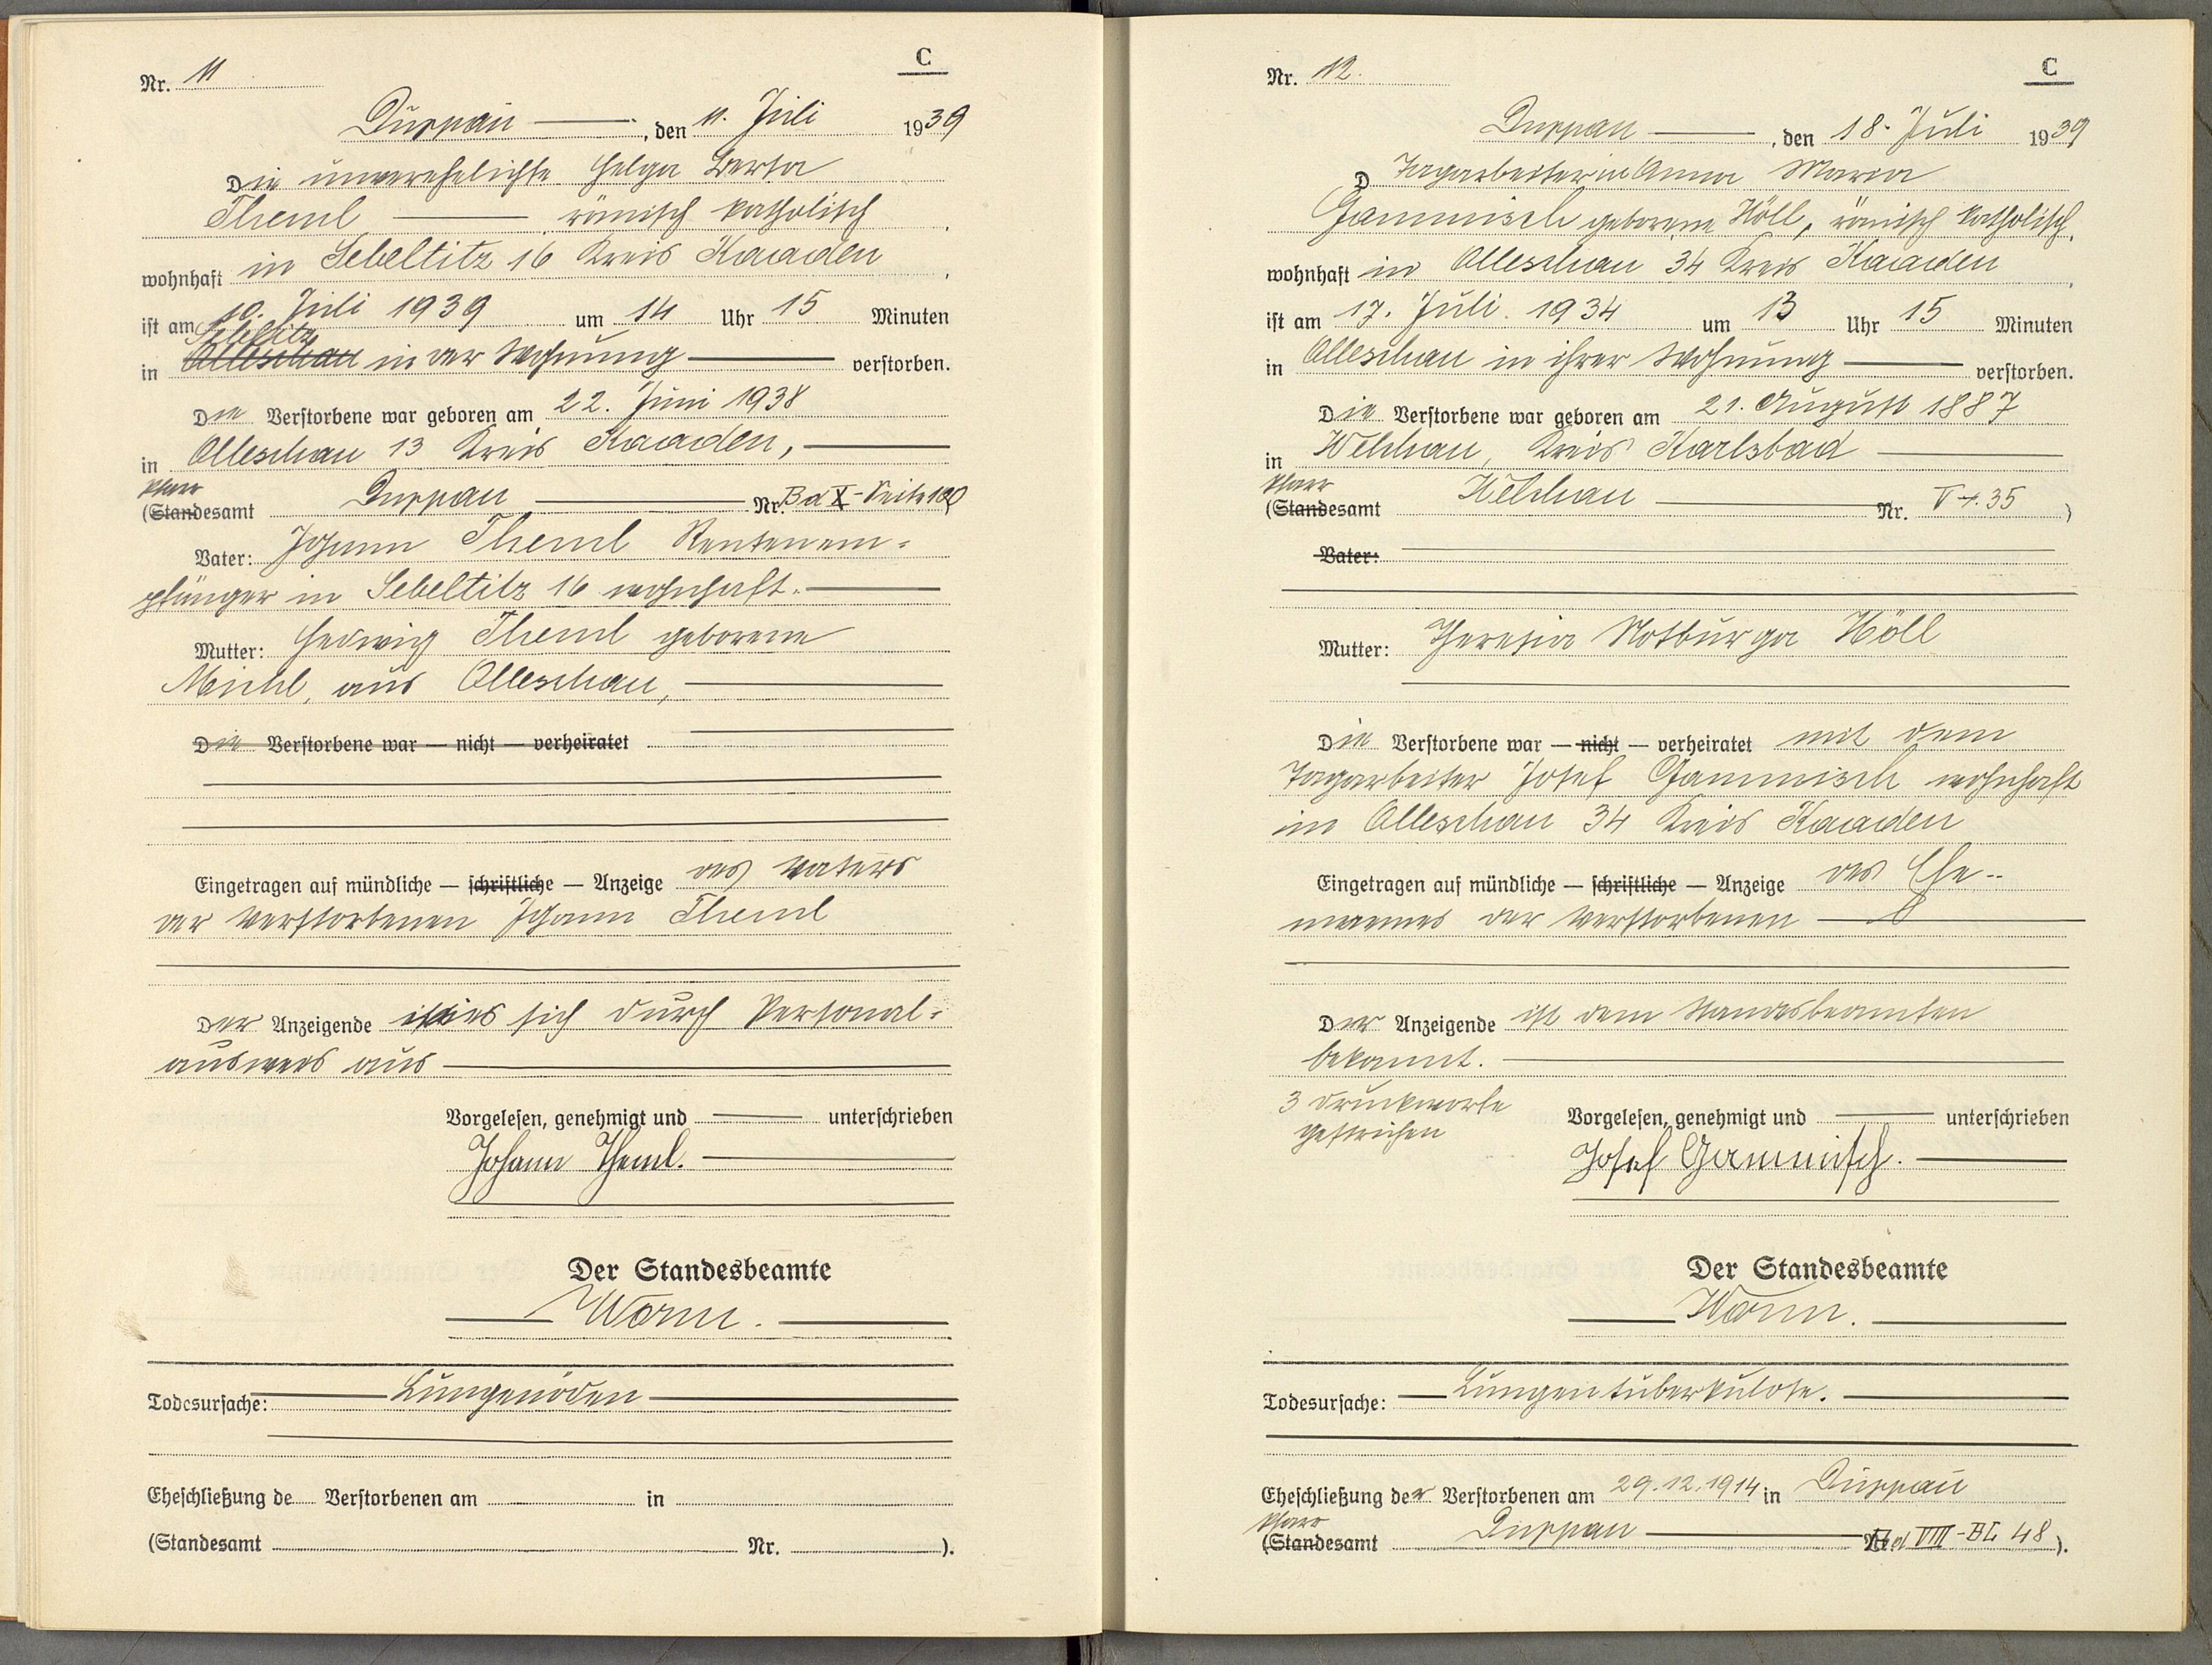 Nr. 11
C
Duppau, den 11. Juli 1939
Die unverehelichte Helga Berta
Theml römisch katholisch,
wohnhaft in Sebeltitz 16 Kreis Kaaden,
ist am 10. Juli 1939 um 14 Uhr 15 Minuten
in Alleschau in der Wohnung verstorben.
Die Verstorbene war geboren am 22. Juni 1938
in Olleschau 13 Kreis Kaaden,
Pfarr
(Standesamt Duppau Nr. Bd X - Seite
Vater: Johann Theml Rentenem-
pfänger in Sebeltitz 16 wohnhaft.
Mutter: Hedwig Theml geborene
Michl, aus Olleschau,
Die Verstorbene war — nicht — verheiratet
Eingetragen auf mündliche — schriftliche — Anzeige des Vaters
der Verstorbenen Johann Theml
Der Anzeigende sich durch Personal-
ausweis aus
Vorgelesen, genehmigt und unterschrieben
Johann Theml.
Der Standesbeamte
Worm.
Todesursache: Lungenödem
Eheschließung de Verstorbenen am in
(Standesamt Nr. ).
Nr. 12.
C
Duppau, den 18. Juli 1939
D Tagarbeiterin Anna Maria
Gammisch geborene Höll, römisch katholisch,
wohnhaft in Olleschau 34 Kreis Kaaden,
ist am 17. Juli. 1934 um 13 Uhr 15 Minuten
in Olleschau in ihrer Wohnung verstorben.
Die Verstorbene war geboren am 21. August 1887
in Welchau, Kreis Karlsbad
Pfarr
(Standesamt Welchau Nr. 35 )
Vater:
Mutter: Theresia Notburga Höll
Die Verstorbene war — nicht — verheiratet mit dem
Tagarbeiter Josef Gammisch wohnhaft
in Olleschau 34 Kreis Kaaden
Eingetragen auf mündliche — schriftliche — Anzeige des Ehe-
mannes der Verstorbenen
Der Anzeigende ist dem Standesbeamten
bekannt.
3 Druckworte
gestrichen
Vorgelesen, genehmigt und unterschrieben
Josef Gammisch.
Der Standesbeamte
Worm.
Todesursache: Lungentuberkulose.
Eheschließung der Verstorbenen am 29.12.1914 in Duppau
Pfarr
(Standesamt Duppau VIII - Bl. 48 ).